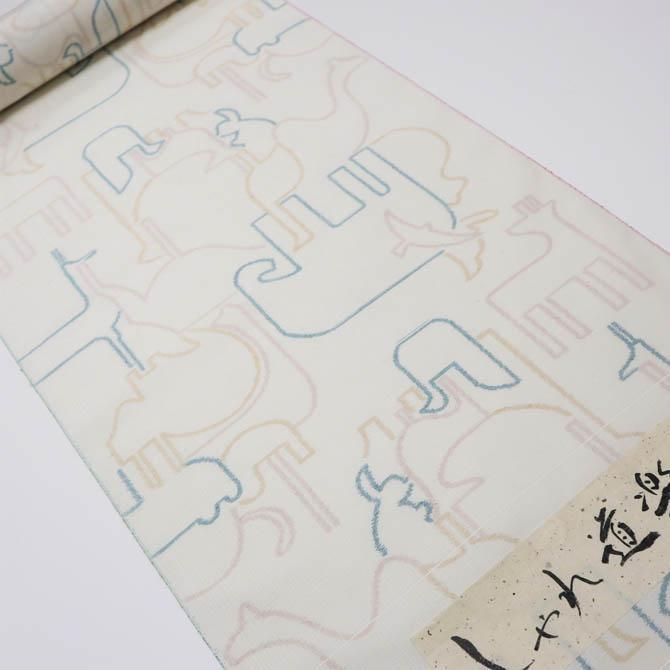 しゃれ道楽